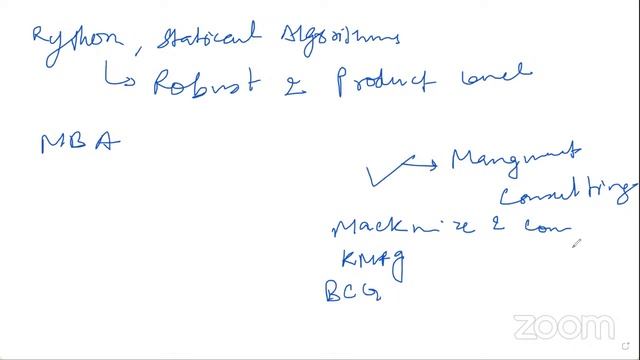 Python, Statical Algorithms
Robust & Product level
MBA
Mangment
Consulting
Macknize & com
KMPG
BCG
zoom